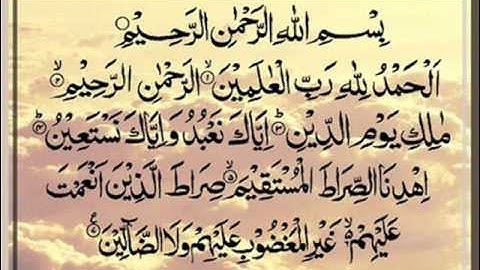 بِسْمِ اللهِ الرَّحْمٰنِ الرَّحِيْمِ
اَلْحَمْدُ لِلّٰهِ رَبِّ الْعٰلَمِيْنَ ۙ﴿۱﴾ الرَّحْمٰنِ الرَّحِيْمِ ۙ﴿۲﴾
مٰلِكِ يَوْمِ الدِّيْنِ ؕ﴿۳﴾ اِيَّاكَ نَعْبُدُ وَاِيَّاكَ نَسْتَعِيْنُ ؕ﴿۴﴾
اِهْدِنَا الصِّرَاطَ الْمُسْتَقِيْمَ ۙ﴿۵﴾ صِرَاطَ الَّذِيْنَ اَنْعَمْتَ
عَلَيْهِمْ ۙ۬﴿۶﴾ غَيْرِ الْمَغْضُوْبِ عَلَيْهِمْ وَلَا الضَّآلِّيْنَ ﴿۷﴾